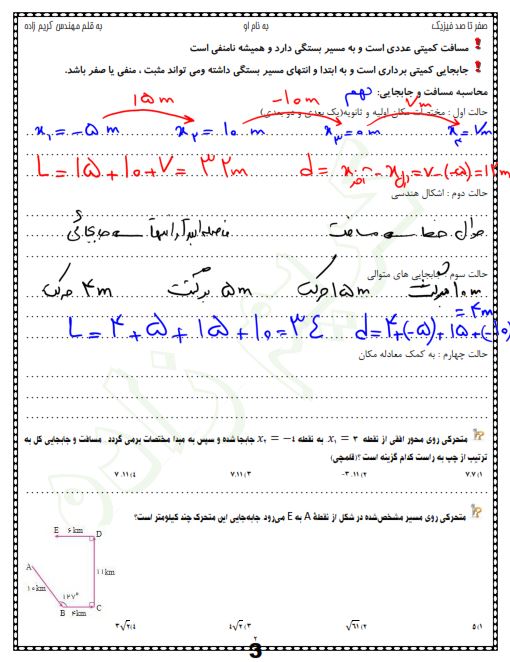 صفر تا صد فیزیک به نام او به قلم مهندس کریم زاده
مسافت کمیتی عددی است و به مسیر بستگی دارد و همیشه نامنفی است
جابجایی کمیتی برداری است و به ابتدا و انتهای مسیر بستگی داشته ومی تواند مثبت ، منفی یا صفر باشد.
محاسبه مسافت و جابجایی: نهم
حالت اول : مختصات مکان اولیه و ثانویه(یک بعدی و دو بعدی)
۱۵m -۱۰m ۷m
x۱=-۵m x۲=۱۰m x۳=۰m x۴=۷m
L=۱۵+۱۰+۷=۳۲m d=xآخر-xاول=۷-(-۵)=۱۲m
حالت دوم : اشکال هندسی
طول خط مسافت فاصله ابتدا تا انتها جابجائی
حالت سوم : جابجایی های متوالی
۴m حرکت ۵m برگشت ۱۵m حرکت ۱۰m برگشت
=۴m
L=۴+۵+۱۵+۱۰=۳۴ d=۴+(-۵)+۱۵+(-۱۰)
حالت چهارم : به کمک معادله مکان
متحرکی روی محور افقی از نقطه x۱ = ۳ به نقطه x۲ = -۴ جابجا شده و سپس به مبدا مختصات برمی گردد . مسافت و جابجایی کل به
ترتیب از چپ به راست کدام گزینه است ؟(قلمچی)
۱) ۷،۷ ۲) ۱۱،-۳ ۳) ۷،۱۱ ۴) ۱۱،۷
متحرکی روی مسیر مشخص‌شده در شکل از نقطهٔ A به E می‌رود جابه‌جایی این متحرک چند کیلومتر است؟
E ۶km D
A ۱۱km
۱۰km ۱۲۷°
B ۴km C
۱) ۵ ۲) √۶۱ ۳) ۴√۲ ۴) ۳√۲
۲
3